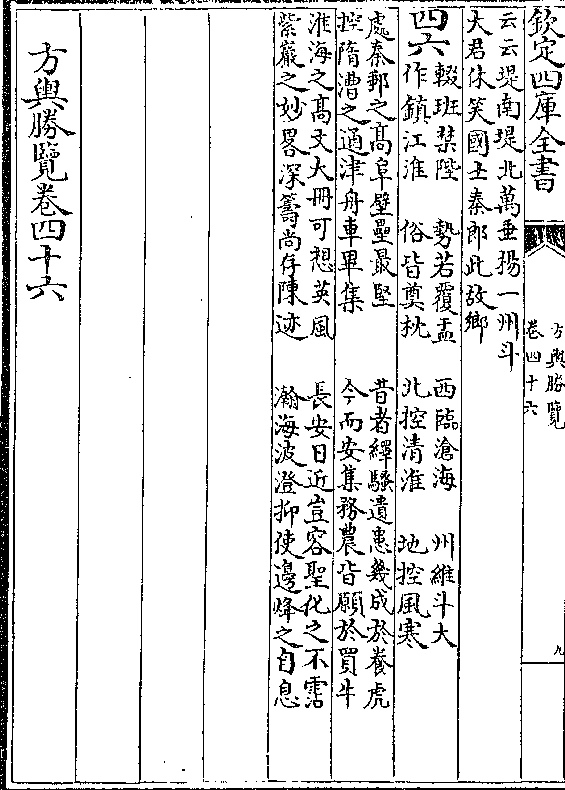 欽定四庫全書
方輿勝覽
卷四十六
九
云云堤南堤北萬垂揚一州斗
大君休笑國士秦郎此故鄉
四六
輟班禁陛
作鎮江淮
勢若覆盂
俗皆奠枕
西臨滄海
北控清淮
州維斗大
地控風寒
處秦郵之高阜壁壘最堅
控隋漕之通津舟車畢集
昔者繹騷遺患幾成於養虎
今而安集務農皆願於買牛
淮海之高文大冊可想英風
紫巖之妙畧深籌尚存陳迹
長安日近豈容聖化之不霑
瀚海波澄抑使邊烽之自息
方輿勝覽卷四十六